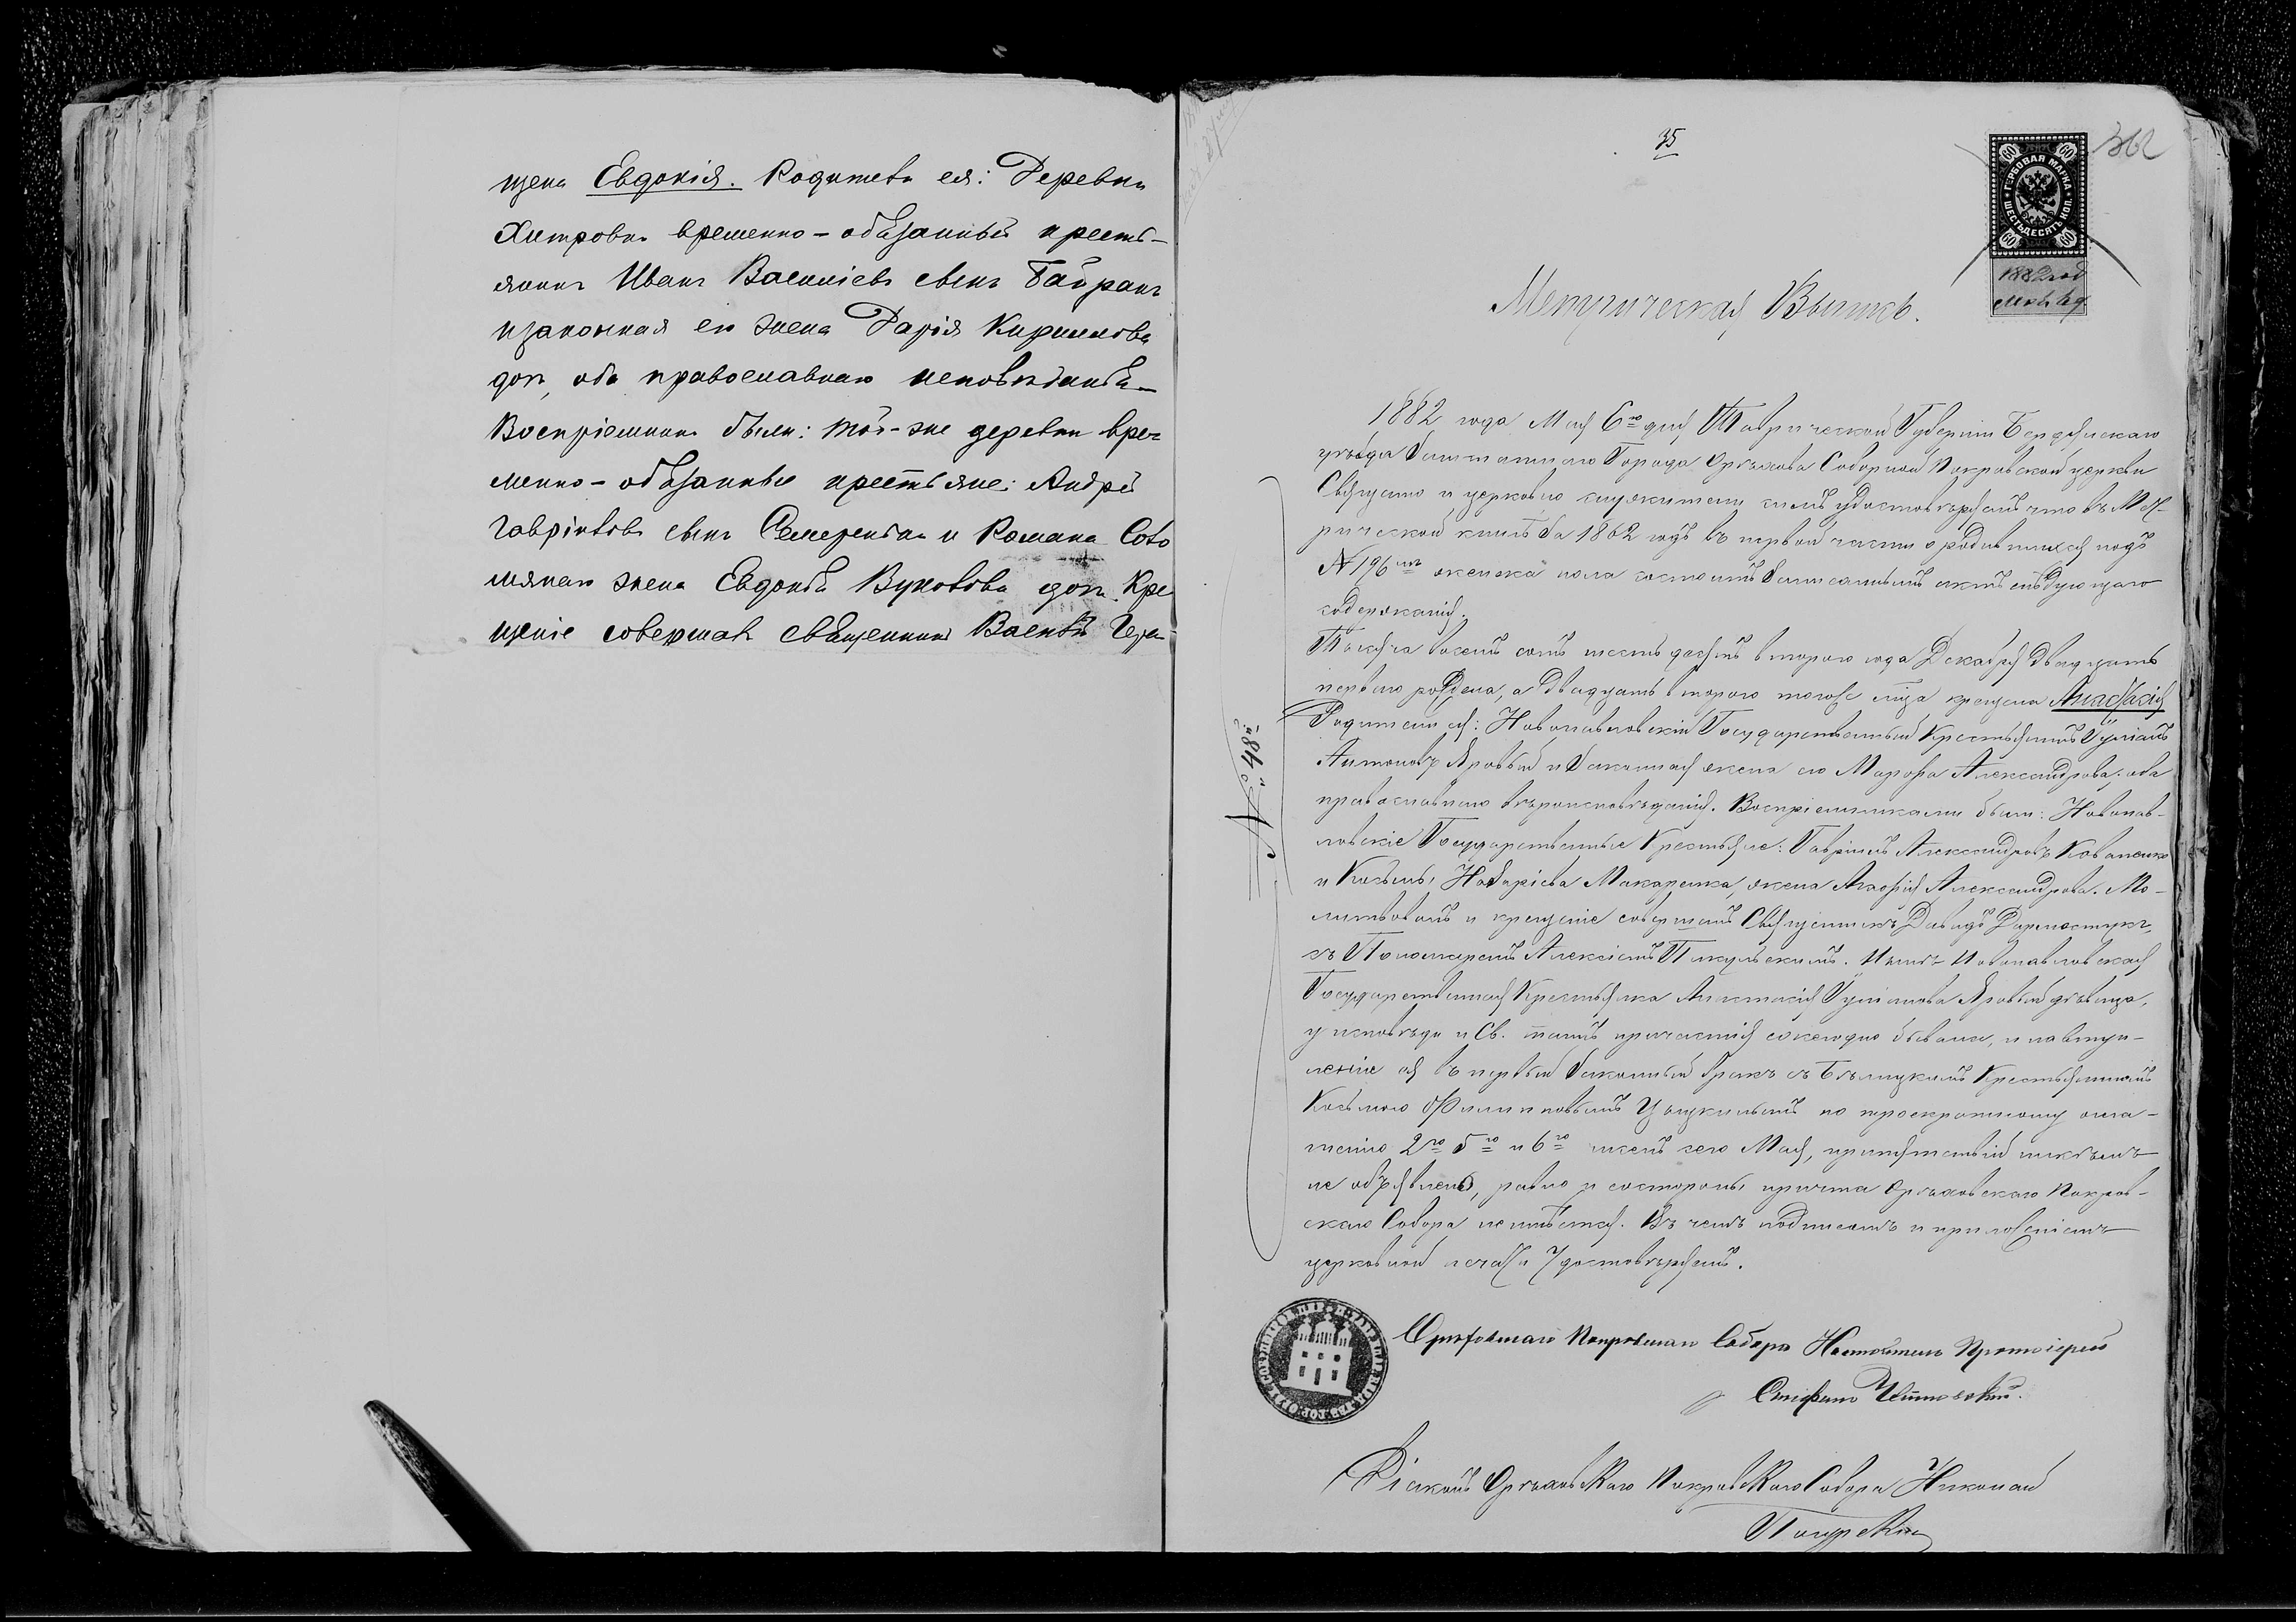 щена Евдокія. Родители ея: Деревни
Хитровки временно-обязанный кресть-
янинъ Иванъ Василіевъ сынъ Байракъ
и законная его жена Дарія Кириллова
доч, оба православнаго исповѣданія.
Воспріемники были: той-же деревни вре-
менно-обязанные крестьяне: Андрей
Гавріиловъ сынъ и Романа
жена Евдокія доч. Кре
щеніе совершалъ священникъ Василій
35
362
ГЕРБОВАЯ МАРКА
ШЕСТЬДЕСЯТЪ КОП.
60 60
60 60
1882 год
Метрическая Выпись.
1882 года Мая 6го дня Таврической Губерніи Бердянскаго
уѣзда заштатнаго Города Орѣхова Соборной Покровской церкви
Священно и церковно служители симъ удостовѣряемъ что въ Мет-
рической книгѣ за 1862 годъ въ первой части о родившихся подъ
№ 196мъ женска пола состоитъ записанымъ актъ слѣдующаго
содержанія.
Тысяча восемъ сотъ шестьдесятъ втораго года Декабря двадцать
перваго рождена, а двадцать втораго тогоже м-ца крещена Анастасія
Родители ея: Новопавловскій Государственный Крестьянинъ Іуліанъ
Антоновъ Яровый и законная жена его Марфа Александрова, оба
православнаго вѣроисповѣданія. Воспріемниками были: Новопав-
ловскіе Государственные Крестьяне: Гавріилъ Александровъ Коваленко
и Косьмы Назаріева Макаренка, жена Агафія Александрова. Мо-
литвовалъ и крещеніе совершалъ Священникъ Давидъ
съ Пономаремъ Алексіемъ Пикульскимъ. Нынѣ Новопавловская
Государственная Крестьянка Анастасія Іуліанова Яровый дѣвица,
у исповѣди и Св. таинъ причастія ежегодно бывала, и на всту-
леніе ея въ первый законный бракъ съ Бѣлицкимъ Крестьяниномъ
Косьмою Филипповымъ по троекратному огла-
шенію 2го 5го и 6го числъ сего Мая, препятствій никѣмъ
не объявлено, равно и состороны причта Орѣховскаго Покров-
скаго Собора не имѣется. Въ чемъ подписомъ и приложеніемъ
церковной печати удостовѣряемъ.
№ 48й
Орѣховскаго Покровскаго Собора Настоятель Протоіерей
Стефанъ
Діаконъ Орѣховскаго Покровскаго Собора Николай